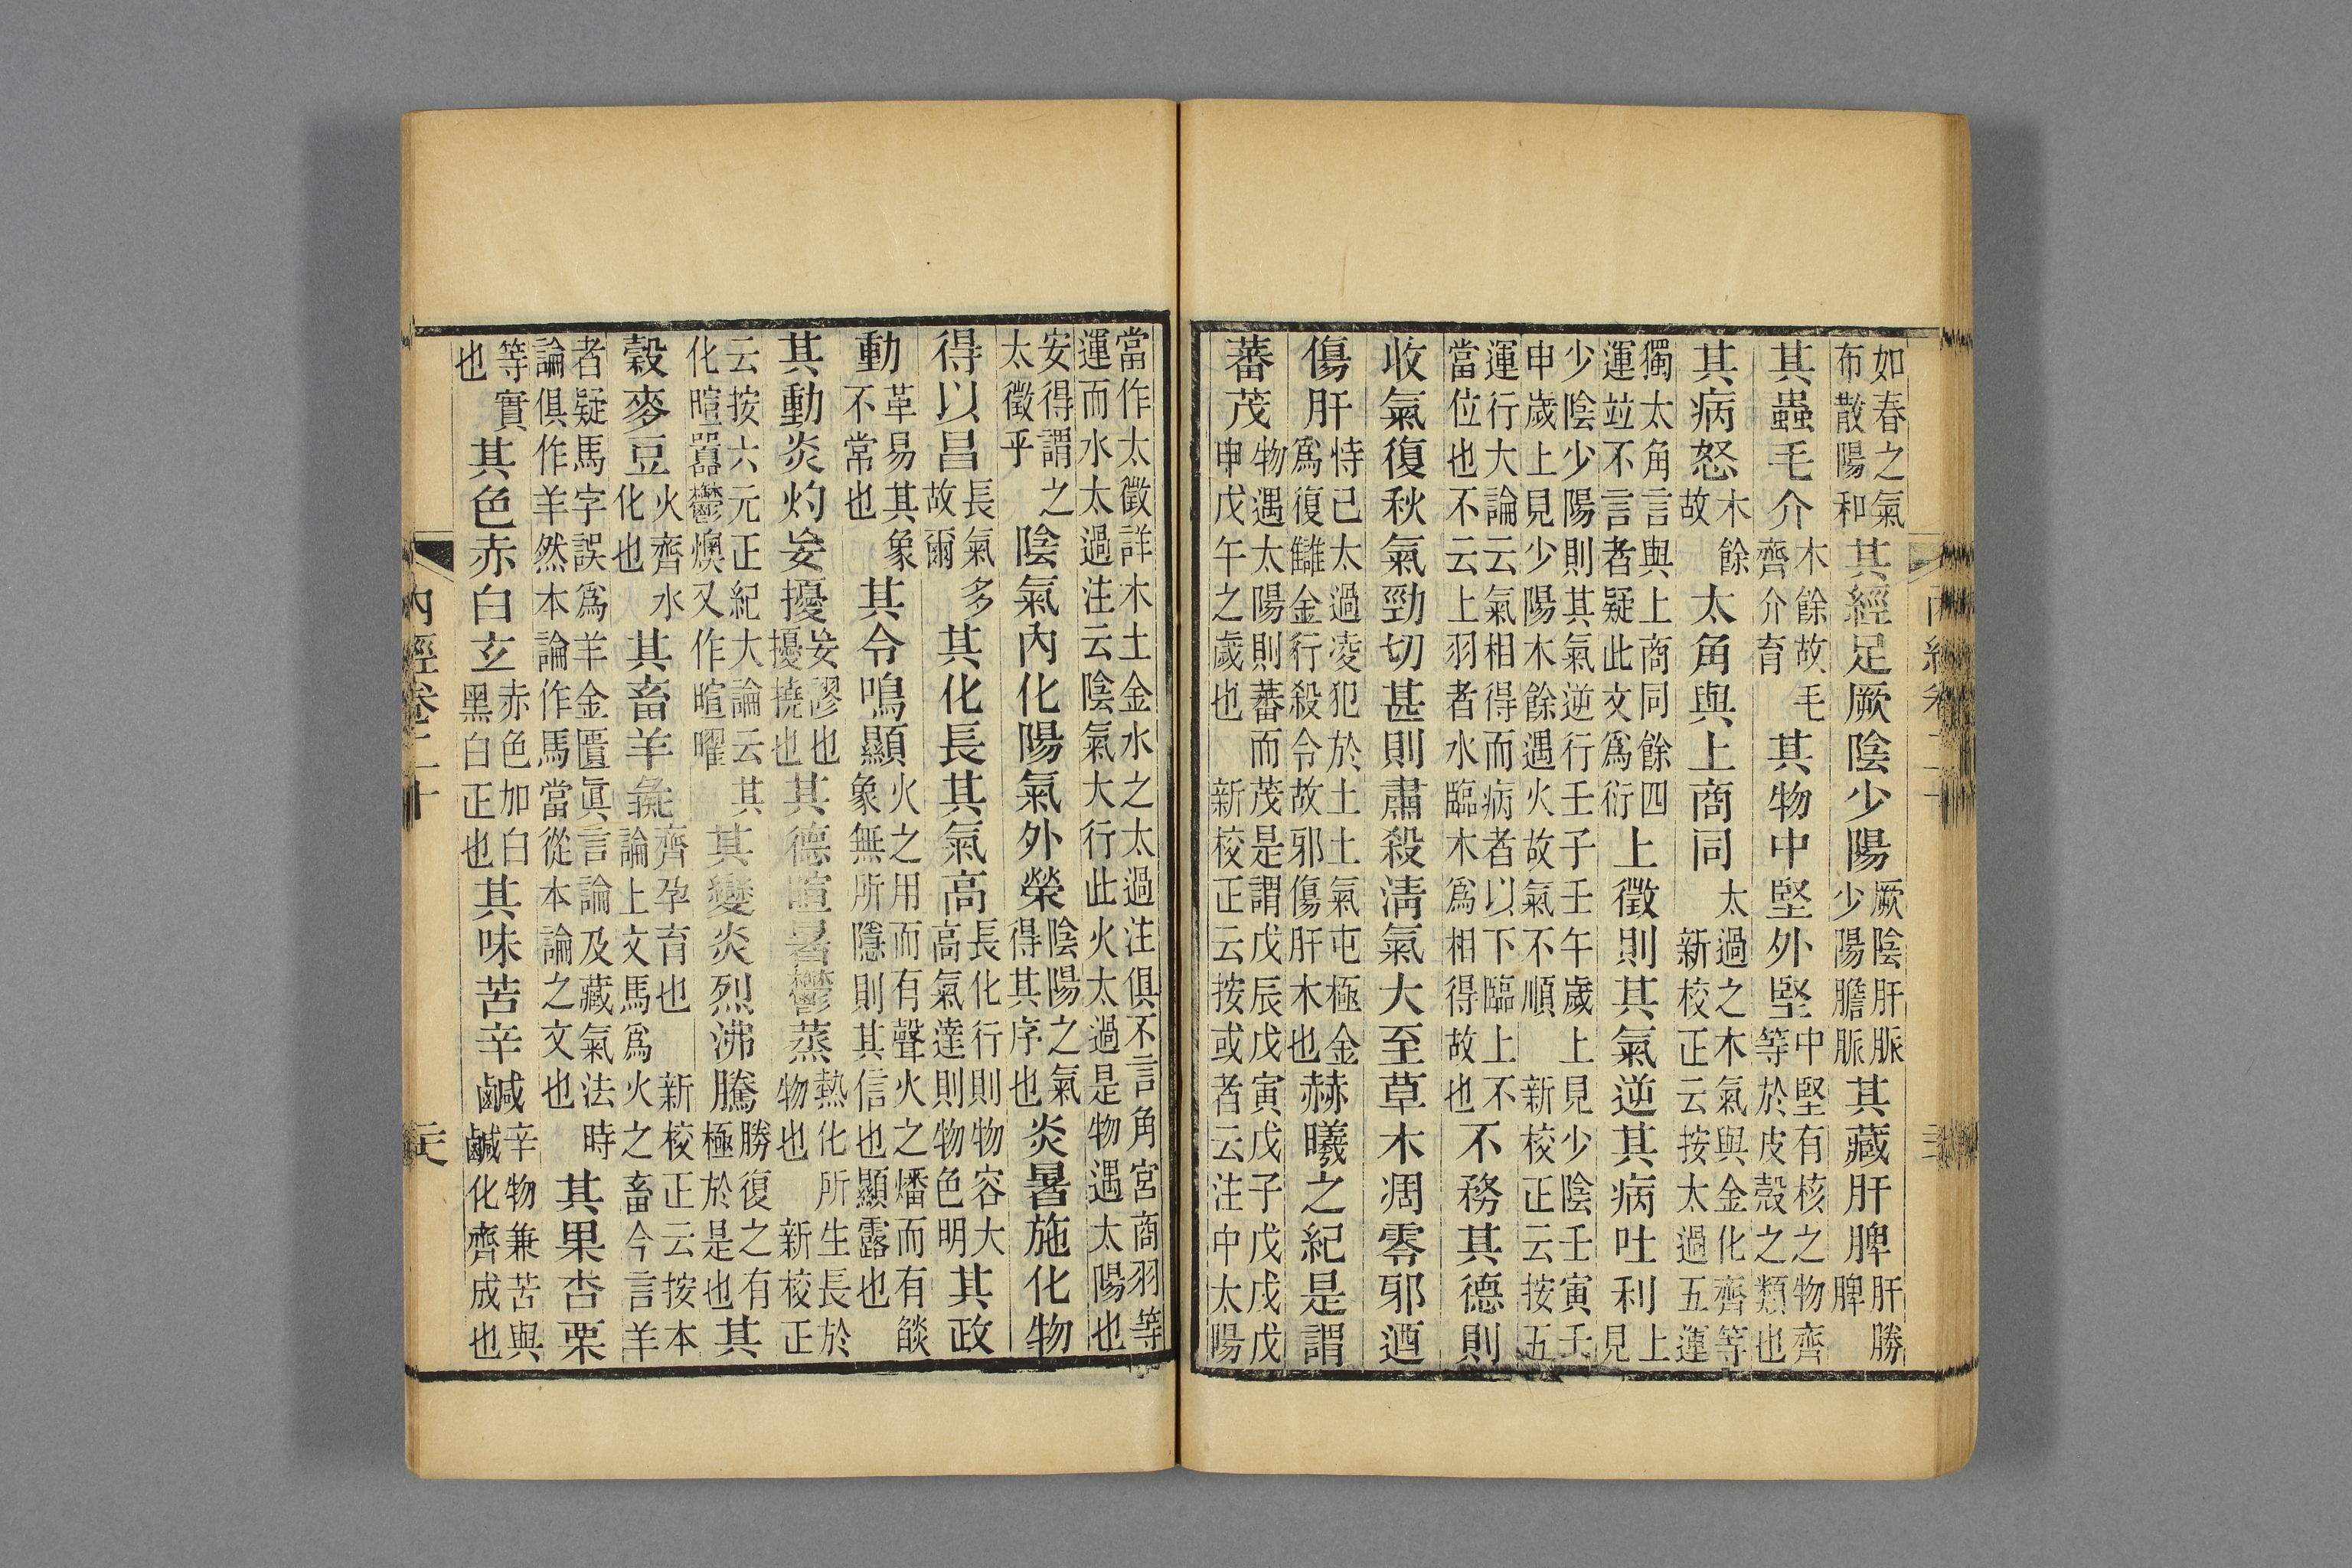 如春之氣布散陽和其經足厥陰少陽厥陰肝脈少陽膽脈其藏肝脾肝勝脾
其蟲毛介木餘故毛齊介育其物中堅外堅中堅有核之物齊等於皮殼之類也
其病怒木餘故太角與上商同太過之木氣與金化齊等新校正云按太過五運
獨太角言與上商同餘四運竝不言者疑此文爲衍上徵則其氣逆其病吐利上見
少陰少陽則其氣逆行壬子壬午歲上見少陰壬寅壬申歲上見少陽木餘遇火故氣不順新校正云按五
運行大論云氣相得而病者以下臨上不當位也不云上羽者水臨木爲相得故也不務其德則
收氣復秋氣勁切甚則肅殺淸氣大至草木凋零邪迺
傷肝恃己太過凌犯於土土氣屯極金爲復讎金行殺令故邪傷肝木也赫曦之紀是謂
蕃茂物遇太陽則蕃而茂是謂戊辰戊寅戊子戊戌戊申戊午之歲也新校正云按或者云注中太陽
當作太徵詳木土金水之太過注俱不言角宮商羽等運而水太過注云陰氣大行此火太過是物遇太陽也
安得謂之太徵乎陰氣內化陽氣外榮陰陽之氣得其序也炎暑施化物
得以昌長氣多故爾其化長其氣高長化行則物容大高氣達則物色明其政
動革易其象不常也其令鳴顯火之用而有聲火之燔而有燄象無所隱則其信也顯露也
其動炎灼妄擾妄謬也擾撓也其德暄暑鬱蒸熱化所生長於物也新校正
云按六元正紀大論云其化暄囂鬱燠又作暄曜其變炎烈沸騰勝復之有極於是也其
穀麥豆火齊水化也其畜羊彘齊孕育也新校正云按本論上文馬爲火之畜今言羊
者疑馬字誤爲羊金匱眞言論及藏氣法時論俱作羊然本論作馬當從本論之文也其果杏栗
等實也其色赤白玄赤色加白黑白正也其味苦辛鹹辛物兼苦與鹹化齊成也
內經卷二十